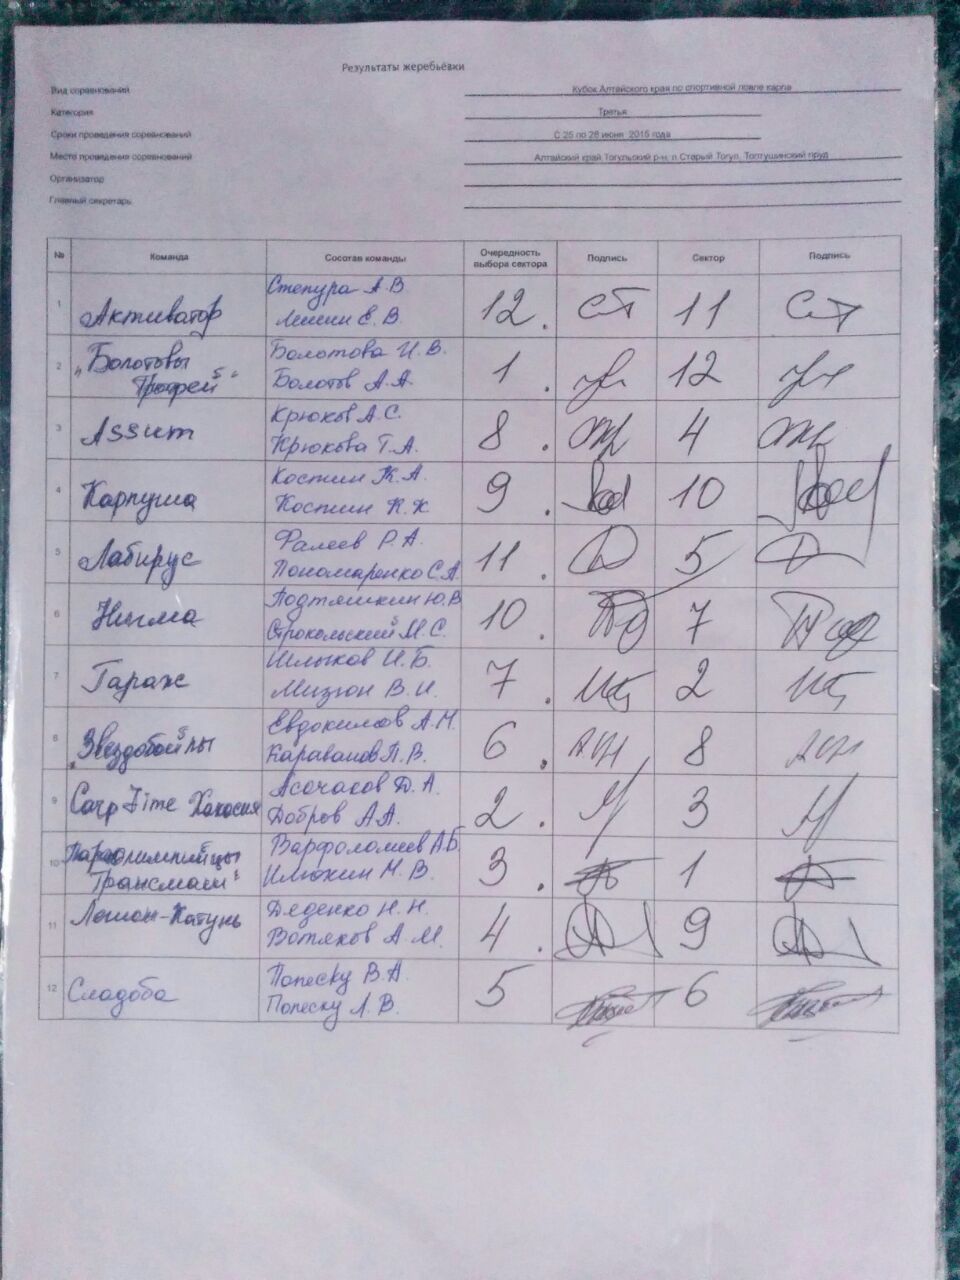 Результаты жеребьёвки
Вид соревнований Кубок Алтайского края по спортивной ловле карпа
Категория Третья
Сроки проведения соревнований С 25 по 28 июня 2015 года
Место проведения соревнований Алтайский край, Тогульский р-н, п.Старый Тогул, Топтушинский пруд
Организатор
Главный секретарь
№ Команда Состав команды Очередность выбора сектора Подпись Сектор Подпись
1 Активатор Степура А.В. 12. 11
Е.В.
2 "Болотовы Трофей" Болотова И.В. 1. 12
Болотов А.А.
3 Assum Крюков А.С. 8. 4
Крюкова Т.А.
4 Карпуша Костин К.А. 9. 10
Костин К.К
5 Лабирус Фалеев Р.А. 11. 5
Пономаренко С.А.
6 Нигма Подтяшкин Ю.В 10. 7
Строкольский М.С.
7 Гараж Шлыков И.Б. 7. 2
Мизюн В.И.
8 Звездобойцы Евдокимов А.Н. 6. 8
Караваков П.В.
9 Carp Time Хакасия Асочаков Д.А. 2. 3
Добров А.А.
10 Параолимпийцы Трансмаш" Варфоломеев А.Б. 3. 1
Илюхин М.В.
11 Легион-Катунь Деденко Н.Н. 4. 9
Вотяков А.М.
12 Сладоба Попеску В.А. 5 6
Попеску Л.В.